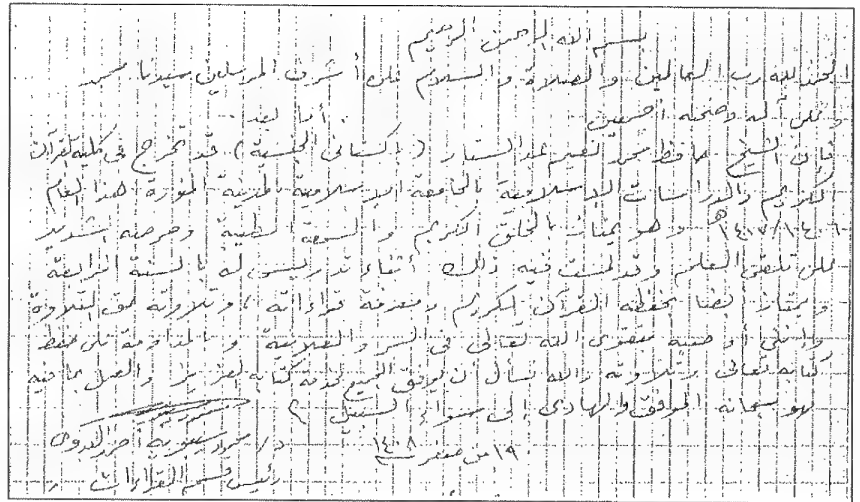 بسم الله الرحمن الرحيم
الحمد لله رب العالمين والصلاة والسلام على أشرف المرسلين سيدنا محمد
وعلى آله وصحبه أجمعين . أما بعد ..
فإن الشيخ حافظ محمد نعيم عبد الستار (باكستاني الجنسية) قد تخرج في كلية القرآن
الكريم والدراسات الإسلامية بالجامعة الإسلامية بالمدينة المنورة هذا العام
١٤٠٧/١٤٠٦هـ وهو يمتاز بالخلق الكريم والسمعة الطيبة وحرصه الشديد
على تلقي العلم وقد لمست فيه ذلك أثناء تدريسي له بالسنة الرابعة
ويمتاز أيضا بحفظه القرآن الكريم ومعرفة قراءاته ، وتلاوته حق التلاوة
وإنني أوصيه بتقوى الله تعالى في السر والعلانية وبالمداومة على حفظ
كتابه تعالى وتلاوته والله نسأل أن يوفق الجميع لخدمة كتابه العزيز والعمل بما فيه
فهو سبحانه الموفق والهادي إلى سواء السبيل ؟
١٩ من صفر ١٤٠٨ د/ محمود سيبويه أحمد البدوي
رئيس قسم القراءات